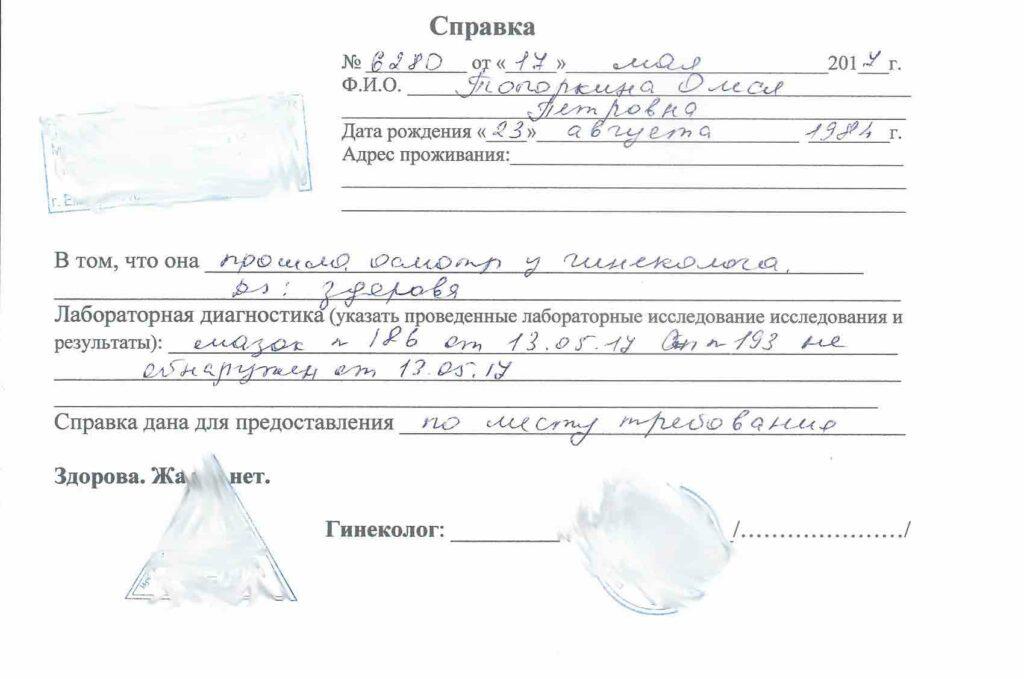 Справка
№ 6280 от «17» мая 2017 г.
Ф.И.О. Топоркина Олеся
Петровна
Дата рождения «23» августа 1984 г.
Адрес проживания:
г. Е
В том, что она прошла осмотр у гинеколога.
Ds: здорова
Лабораторная диагностика (указать проведенные лабораторные исследование исследования и
результаты): мазок № 186 от 13.05.17 № 193 не
обнаружен от 13.05.17
Справка дана для предоставления по месту требования
Здорова. Жа нет.
Гинеколог: /…………………/